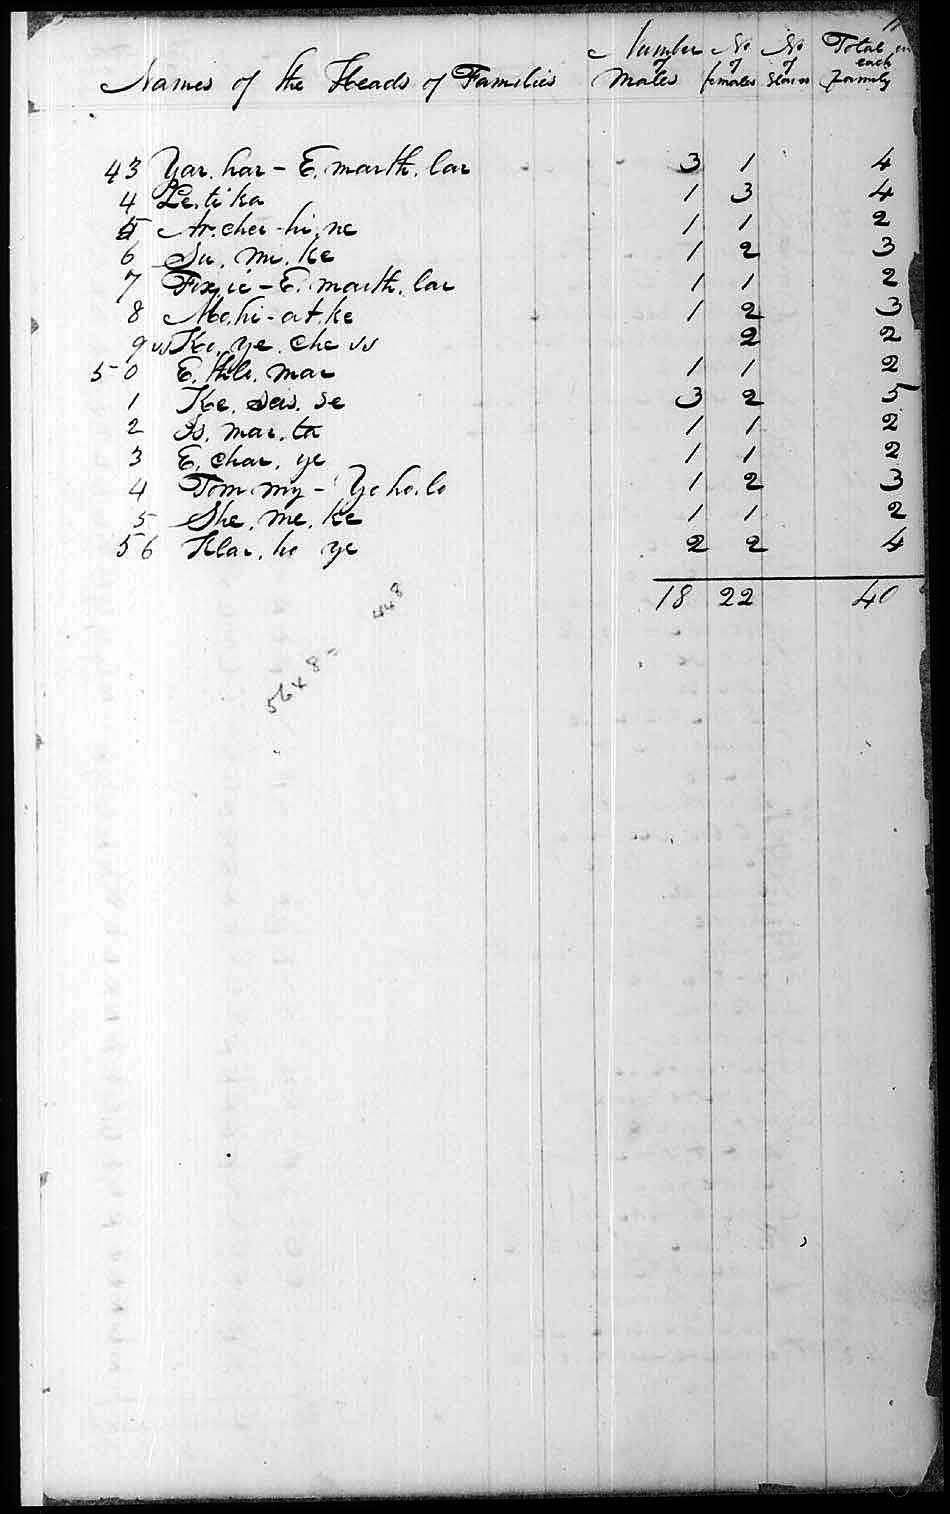 Names of the Heads of Families Number of Males No of females No of Slaves Total in each family
43 Yar. har - E. marth. lar 3 1 4
4 Le. ti ka 1 3 4
5 Ar. chee - hi. ne 1 1 2
6 Su. me. ke 1 2 3
7 Fixic - E. marth. lar 1 1 2
8 No. hi - at. ke 1 2 3
9 ws Ko. ye. che ss 2 2
50 E. thlo. mar 1 1 2
1 Ke. sas. se 3 2 5
2 Is. mar. ta 1 1 2
3 E. char. ye 1 1 2
4 Tom my - Yo ho. lo 1 2 3
5 She. me. ke 1 1 2
56 Klar. ho ye 2 2 4
18 22 40
56 x 8 = 448